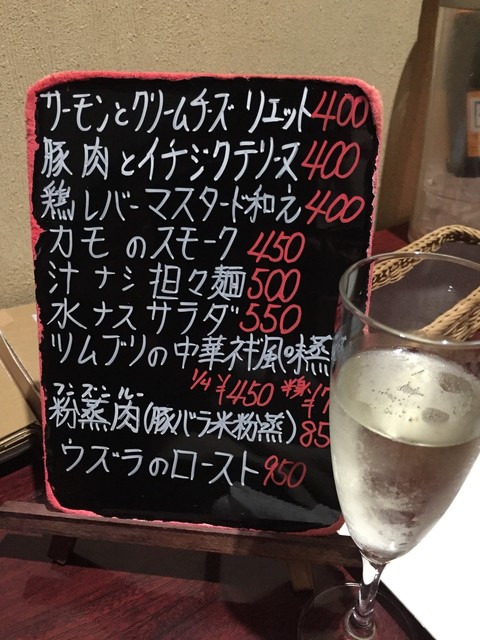 サーモンとクリームチーズ リエット400
豚肉とイチジクテリーヌ400
鶏レバーマスタード和え400
カモのスモーク 450
汁ナシ担々麺500
水ナスサラダ550
ツムブリの中華ネギ風味蒸
1/4 ¥450
フンズンルー
粉蒸肉(豚バラ米粉蒸)
ウズラのロースト950